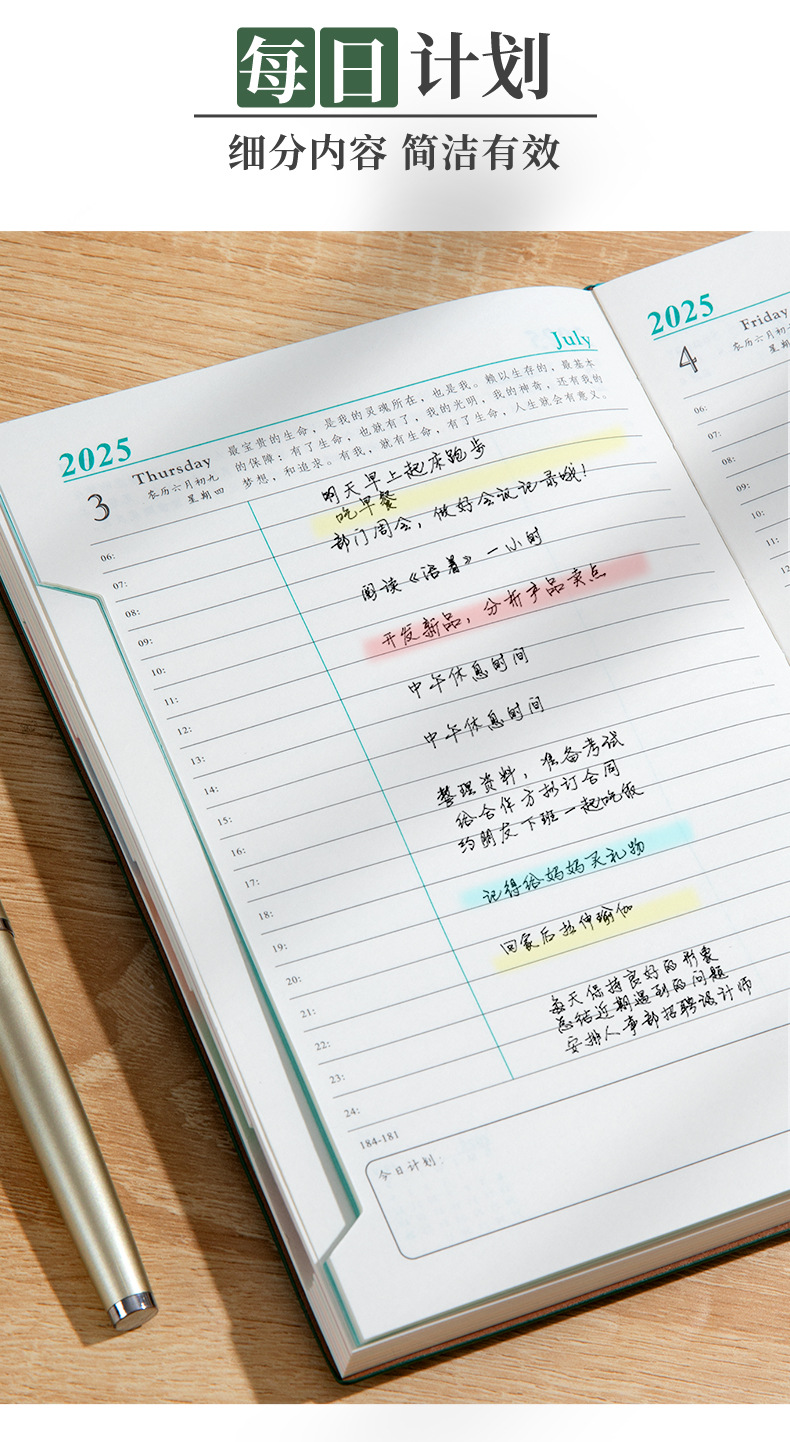 每日计划
细分内容 简洁有效
2025
July
3
Thursday
农历六月初九
星期四
最宝贵的生命，是我的灵魂所在，也是我。赖以生存的，最基本
的保障；有了生命，也就有了，我的光明，我的神奇，还有我的
梦想，和追求。有我，就有生命，有了生命，人生就会有意义。
明天早上起床跑步
吃早餐
部门周会，做好会议记录哦！
阅读《活着》一小时
开发新品，分析产品卖点
中午休息时间
中午休息时间
整理资料，准备考试
给合作方拟订合同
约朋友下班一起吃饭
记得给妈妈买礼物
回家后拉伸瑜伽
每天保持良好的形象
总结近期遇到的问题
安排人事部招聘设计师
06:
07:
08:
09:
10:
11:
12:
13:
14:
15:
16:
17:
18:
19:
20:
21:
22:
23:
24:
184-181
今日计划：
2025
4
Friday
农历六月初
星期
06:
07:
08:
09:
10:
11:
12